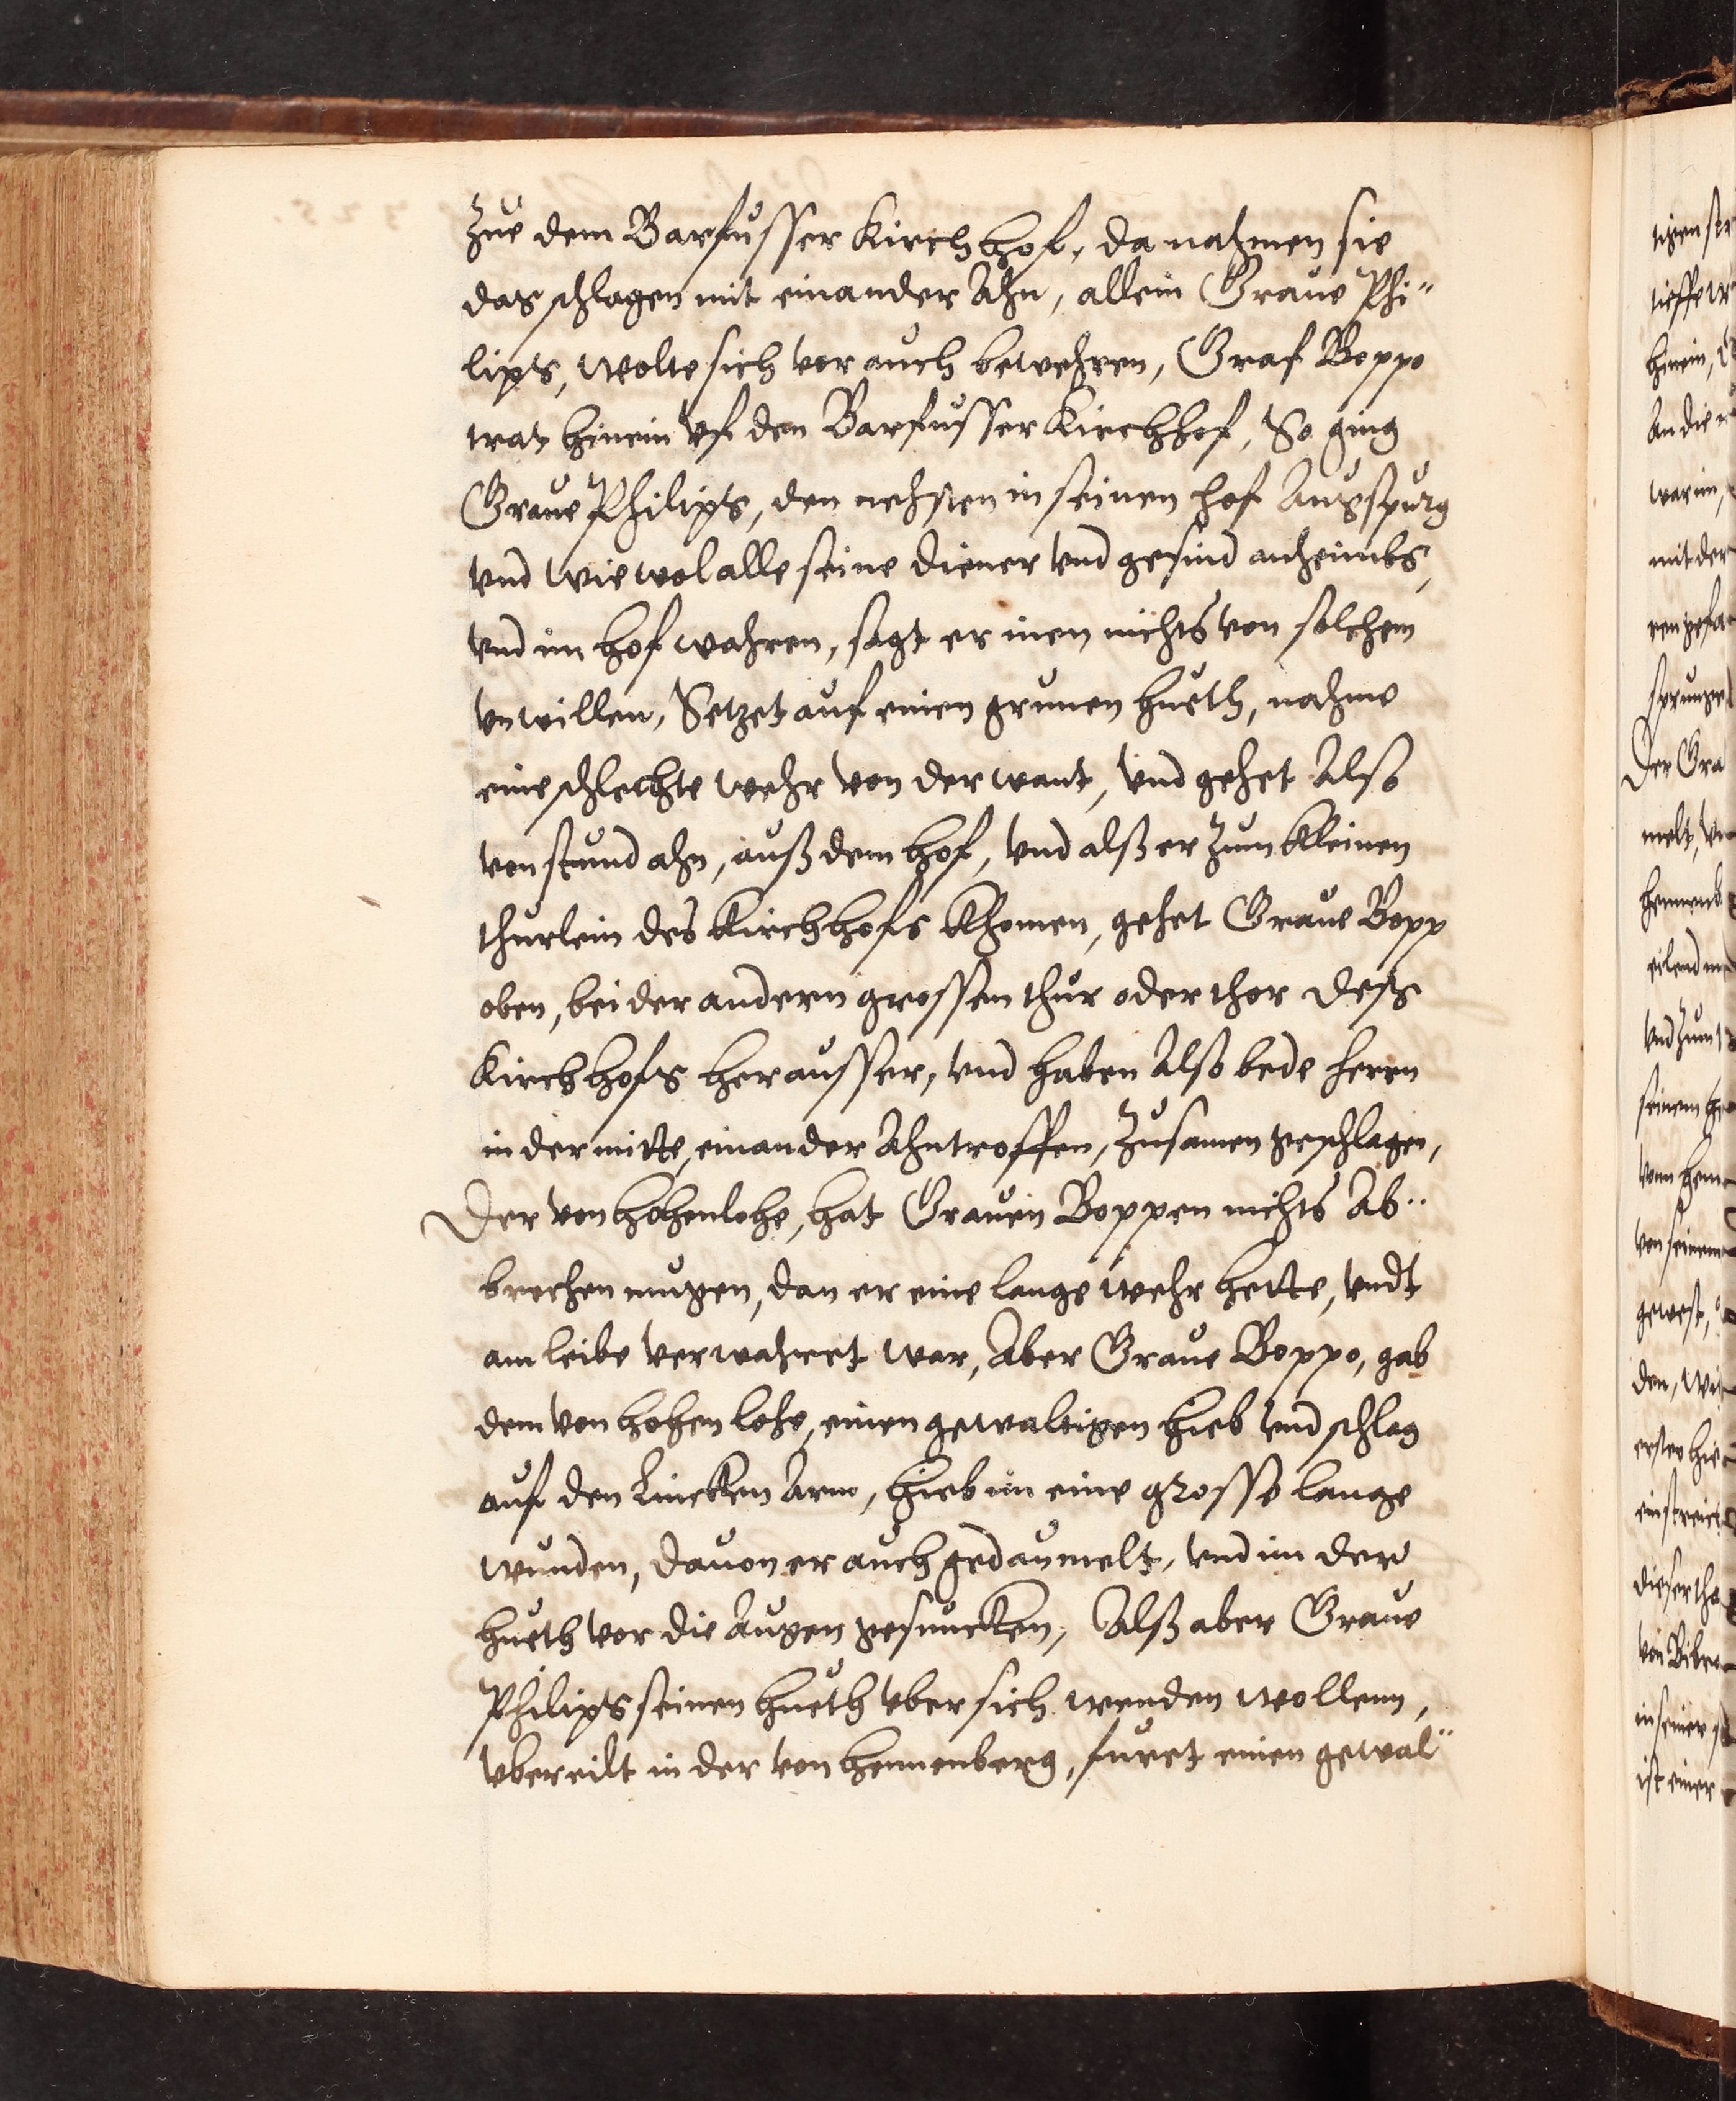 Zue dem Barfusser Kirchhof, da nahmen sie
das schlagen mit einander Ahn, allein Graue Phi"
lips, wolte sich vor auch bewehren, Graf Boppo
trat hinein vf den Barfusser Kirchhof, So ging
Graue Philips, den nehsten in seinen hof Augspurg
vnd wie wol alle seine diener vnd gesind anheimbs,
vnd im hof wahren, sagt er inen nichts von solchem
vnwillen, Setzet auf einen grunen hueth, nahme
eine schlechte wehr von der want, vnd gehet Also
von stund ahn, auß dem hof, vnd alß er zum kleinen
thurlein des Kirchhofs khomen, gehet Graue Bopp
oben, bei der andern grossen thur oder thor deß
Kirchhofs herausser, vnd haben Also bede herrn
in der mitte, einander Ahntroffen, zusamen geschlagen,
Der von hohenlohe, hat Grauen Boppen nichts Ab"
brechen mugen, dan er eine lange wehr hette, vndt
am leibe verwahret war, Aber Graue Boppo, gab
dem von hohenlohe, einen gewaltigen hieb vnd schlag
auf den Lincken Arm, hieb im eine grosse lange
wunden, dauon er auch gedaumelt, vnd im der
hueth vor die Augen gesuncken, Alß aber Graue
Philips seinen hueth vber sich wenden wollenn,
vbereilt in der von hennenberg, furet einen gewal"